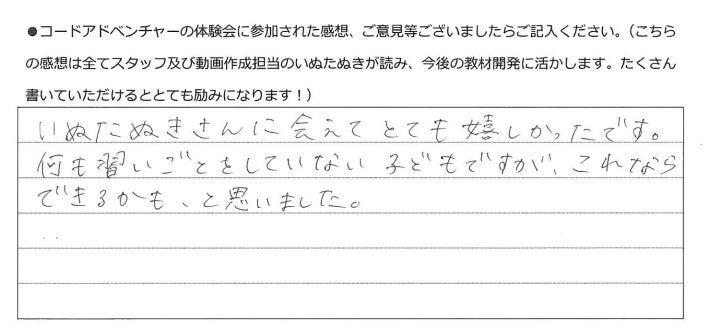 ●コードアドベンチャーの体験会に参加された感想、ご意見等ございましたらご記入ください。（こちら
の感想は全てスタッフ及び動画作成担当のいぬたぬきが読み、今後の教材開発に活かします。たくさん
書いていただけるととても励みになります！）
いぬたぬきさんに会えてとても嬉しかったです。
何も習いごとをしていない子どもですが、これなら
できるかも、と思いました。